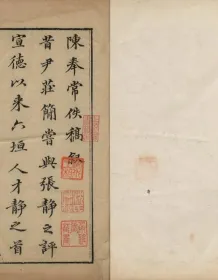 陳奉常佚稿叙
昔尹莊簡嘗與張靜之評
宣德以來六垣人才靜之首